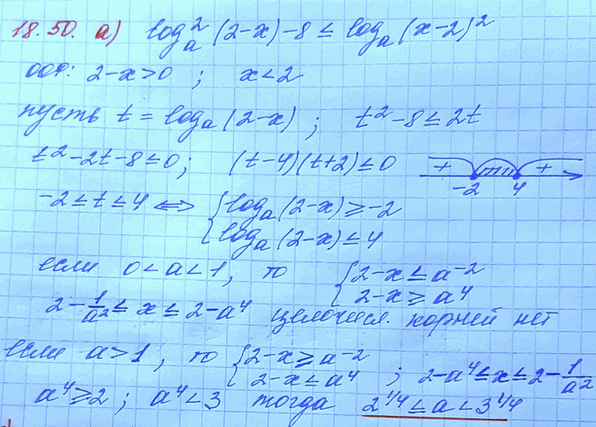 18.50. а) log²ₐ(2-x)-8 ≤ logₐ(x-2)²
ООФ: 2-x>0 ; x<2
пусть t = logₐ(2-x) ; t²-8 ≤ 2t
t²-2t-8 ≤ 0 ; (t-4)(t+2) ≤ 0 + -2 4 +
-2 ≤ t ≤ 4 ⟺ { logₐ(2-x) ≥ -2
logₐ(2-x) ≤ 4
если 0<a<1, то { 2-x ≤ a⁻²
2-x ≥ a⁴
2-1/a² ≤ x ≤ 2-a⁴ целочисл. корней нет
если a>1, то { 2-x ≥ a⁻²
2-x ≤ a⁴ ; 2-a⁴ ≤ x ≤ 2-1/a²
a⁴ ≥ 2 ; a⁴ < 3 тогда 2^1/4 ≤ a < 3^1/4